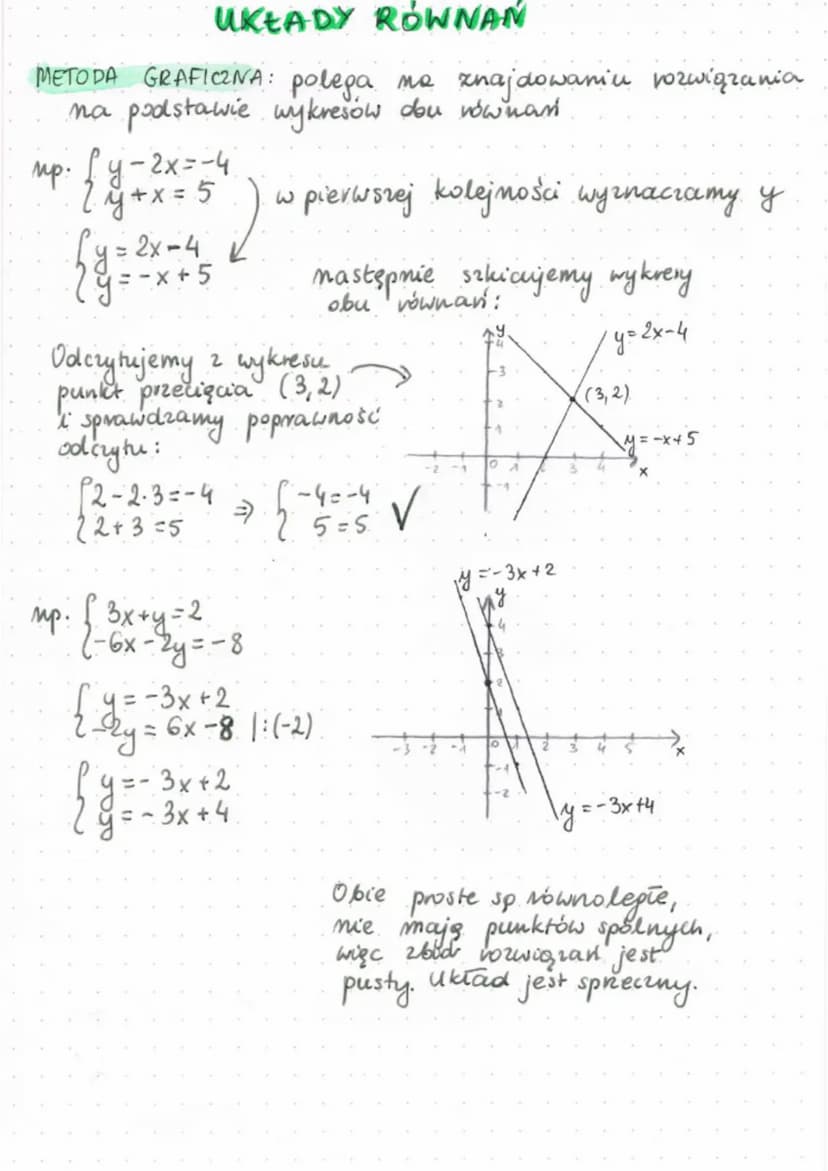 UKŁADY RÓWNAŃ
METODA GRAFICZNA: polega na znajdowaniu rozwiązania
na podstawie wykresów obu równań
np. { y - 2x = -4
y + x = 5
w pierwszej kolejności wyznaczamy y
{ y = 2x - 4
y = -x + 5
następnie szkicujemy wykresy
obu równań:
Odczytujemy z wykresu
punkt przecięcia (3,2)
i sprawdzamy poprawność
odczytu:
{ 2 - 2·3 = -4
2 + 3 = 5
⇒ { -4 = -4
5 = 5 ✓
y
4
3
2
1
-2 -1 0 1 3 4
x
-1
y = 2x - 4
(3,2)
y = -x + 5
np. { 3x + y = 2
-6x - 2y = -8
{ y = -3x + 2
-2y = 6x - 8 |:(-2)
{ y = -3x + 2
y = -3x + 4
y = -3x + 2
y
4
3
2
1
-3 -2 -1 0 1 2 3 4 5
x
-1
-2
y = -3x + 4
Obie proste są równoległe,
nie mają punktów spólnych,
więc zbiór rozwiązań jest
pusty. Układ jest sprzeczny.